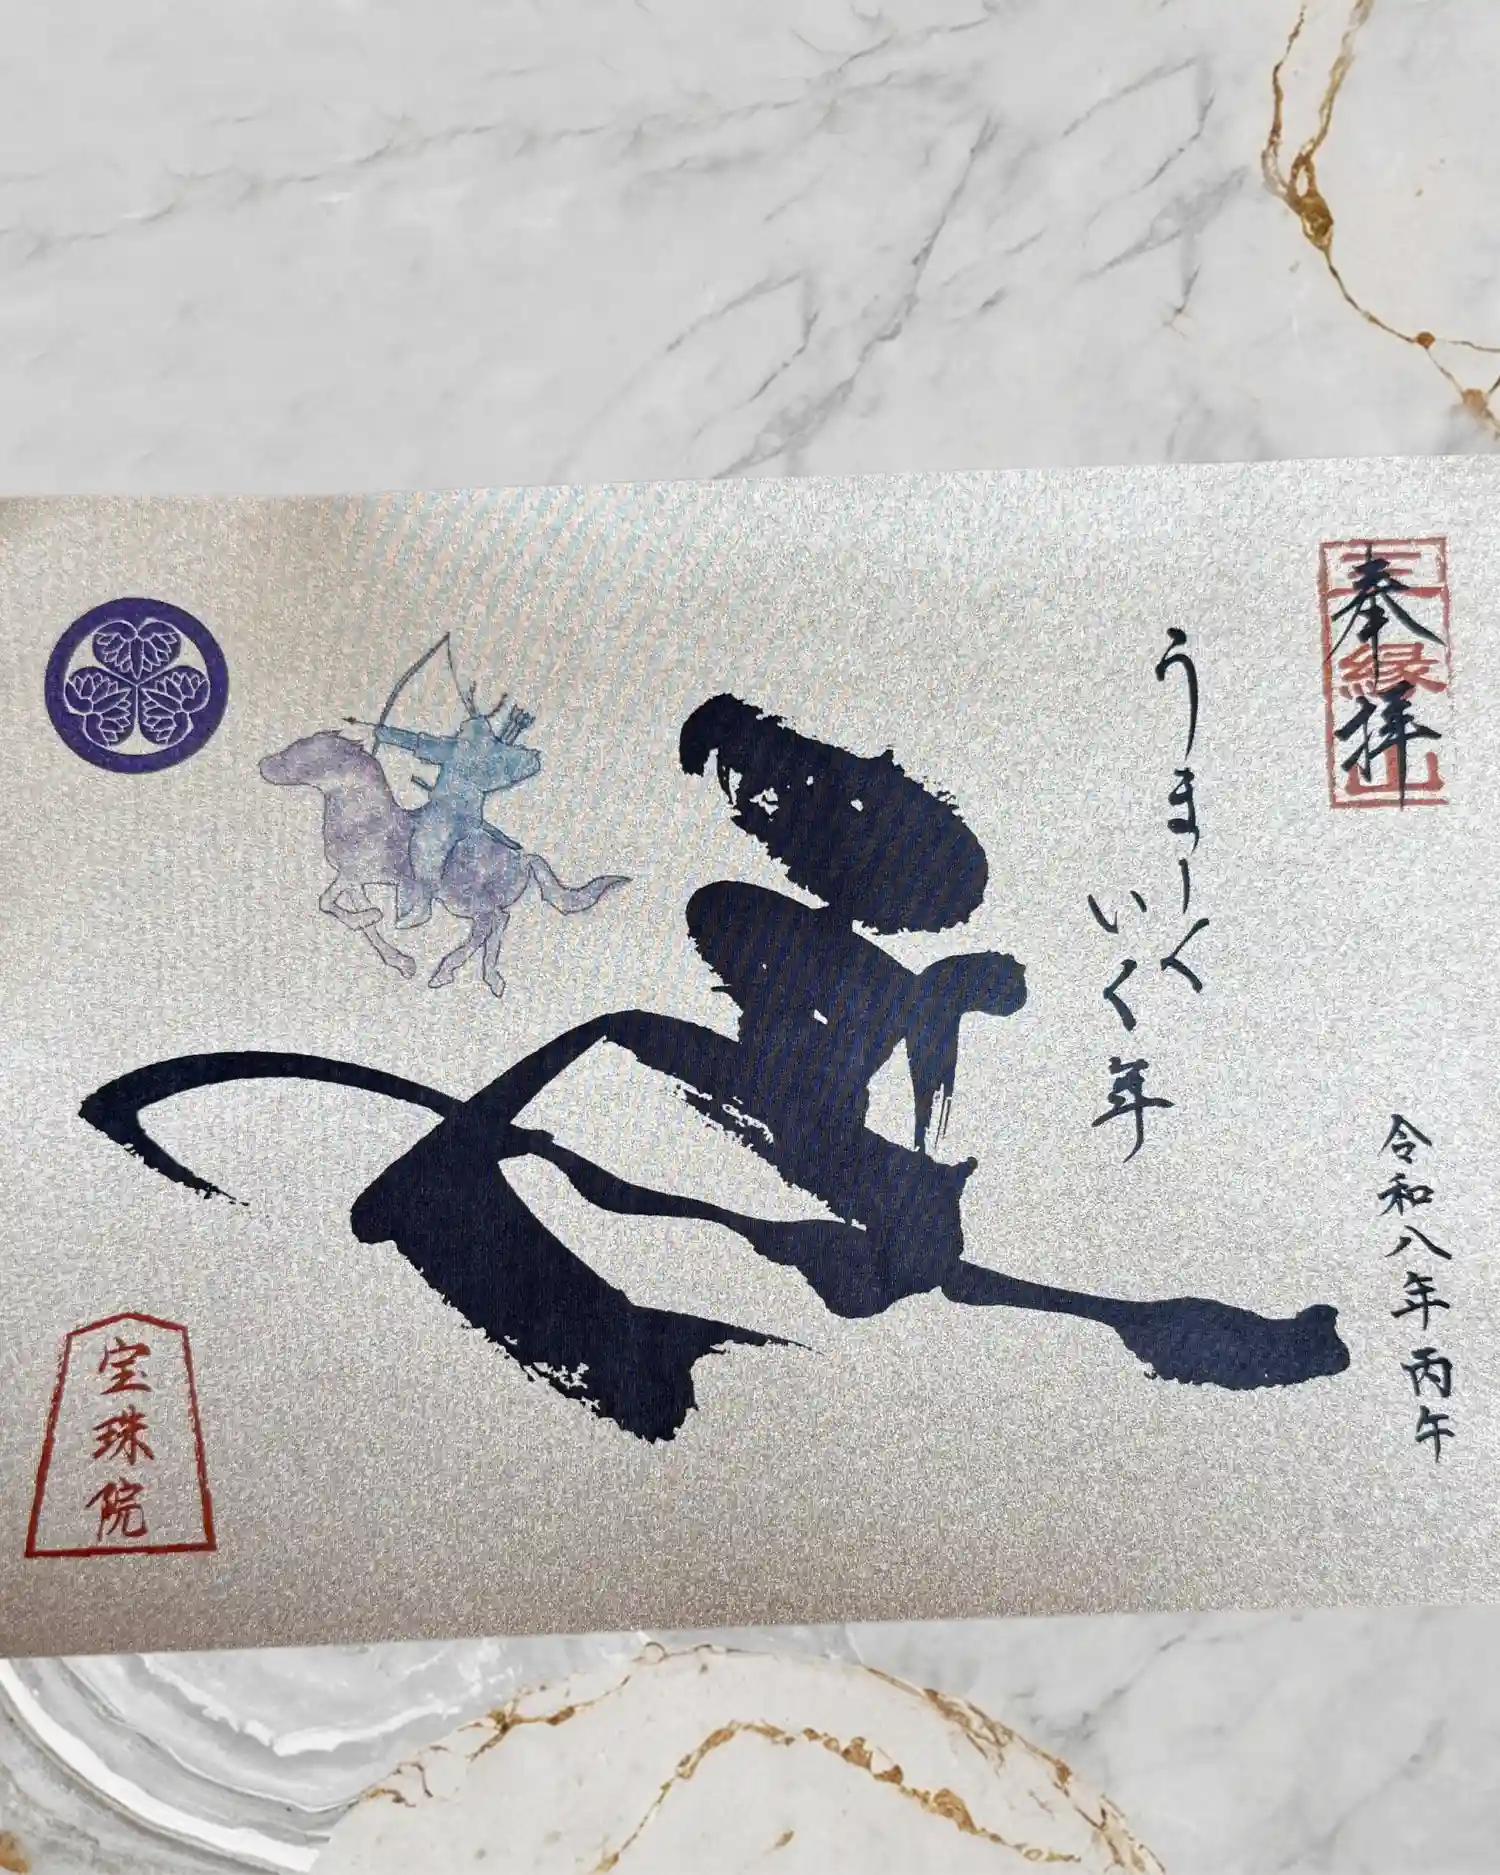 奉拝
三縁山
令和八年丙午
うまーく
いく年
宝珠院